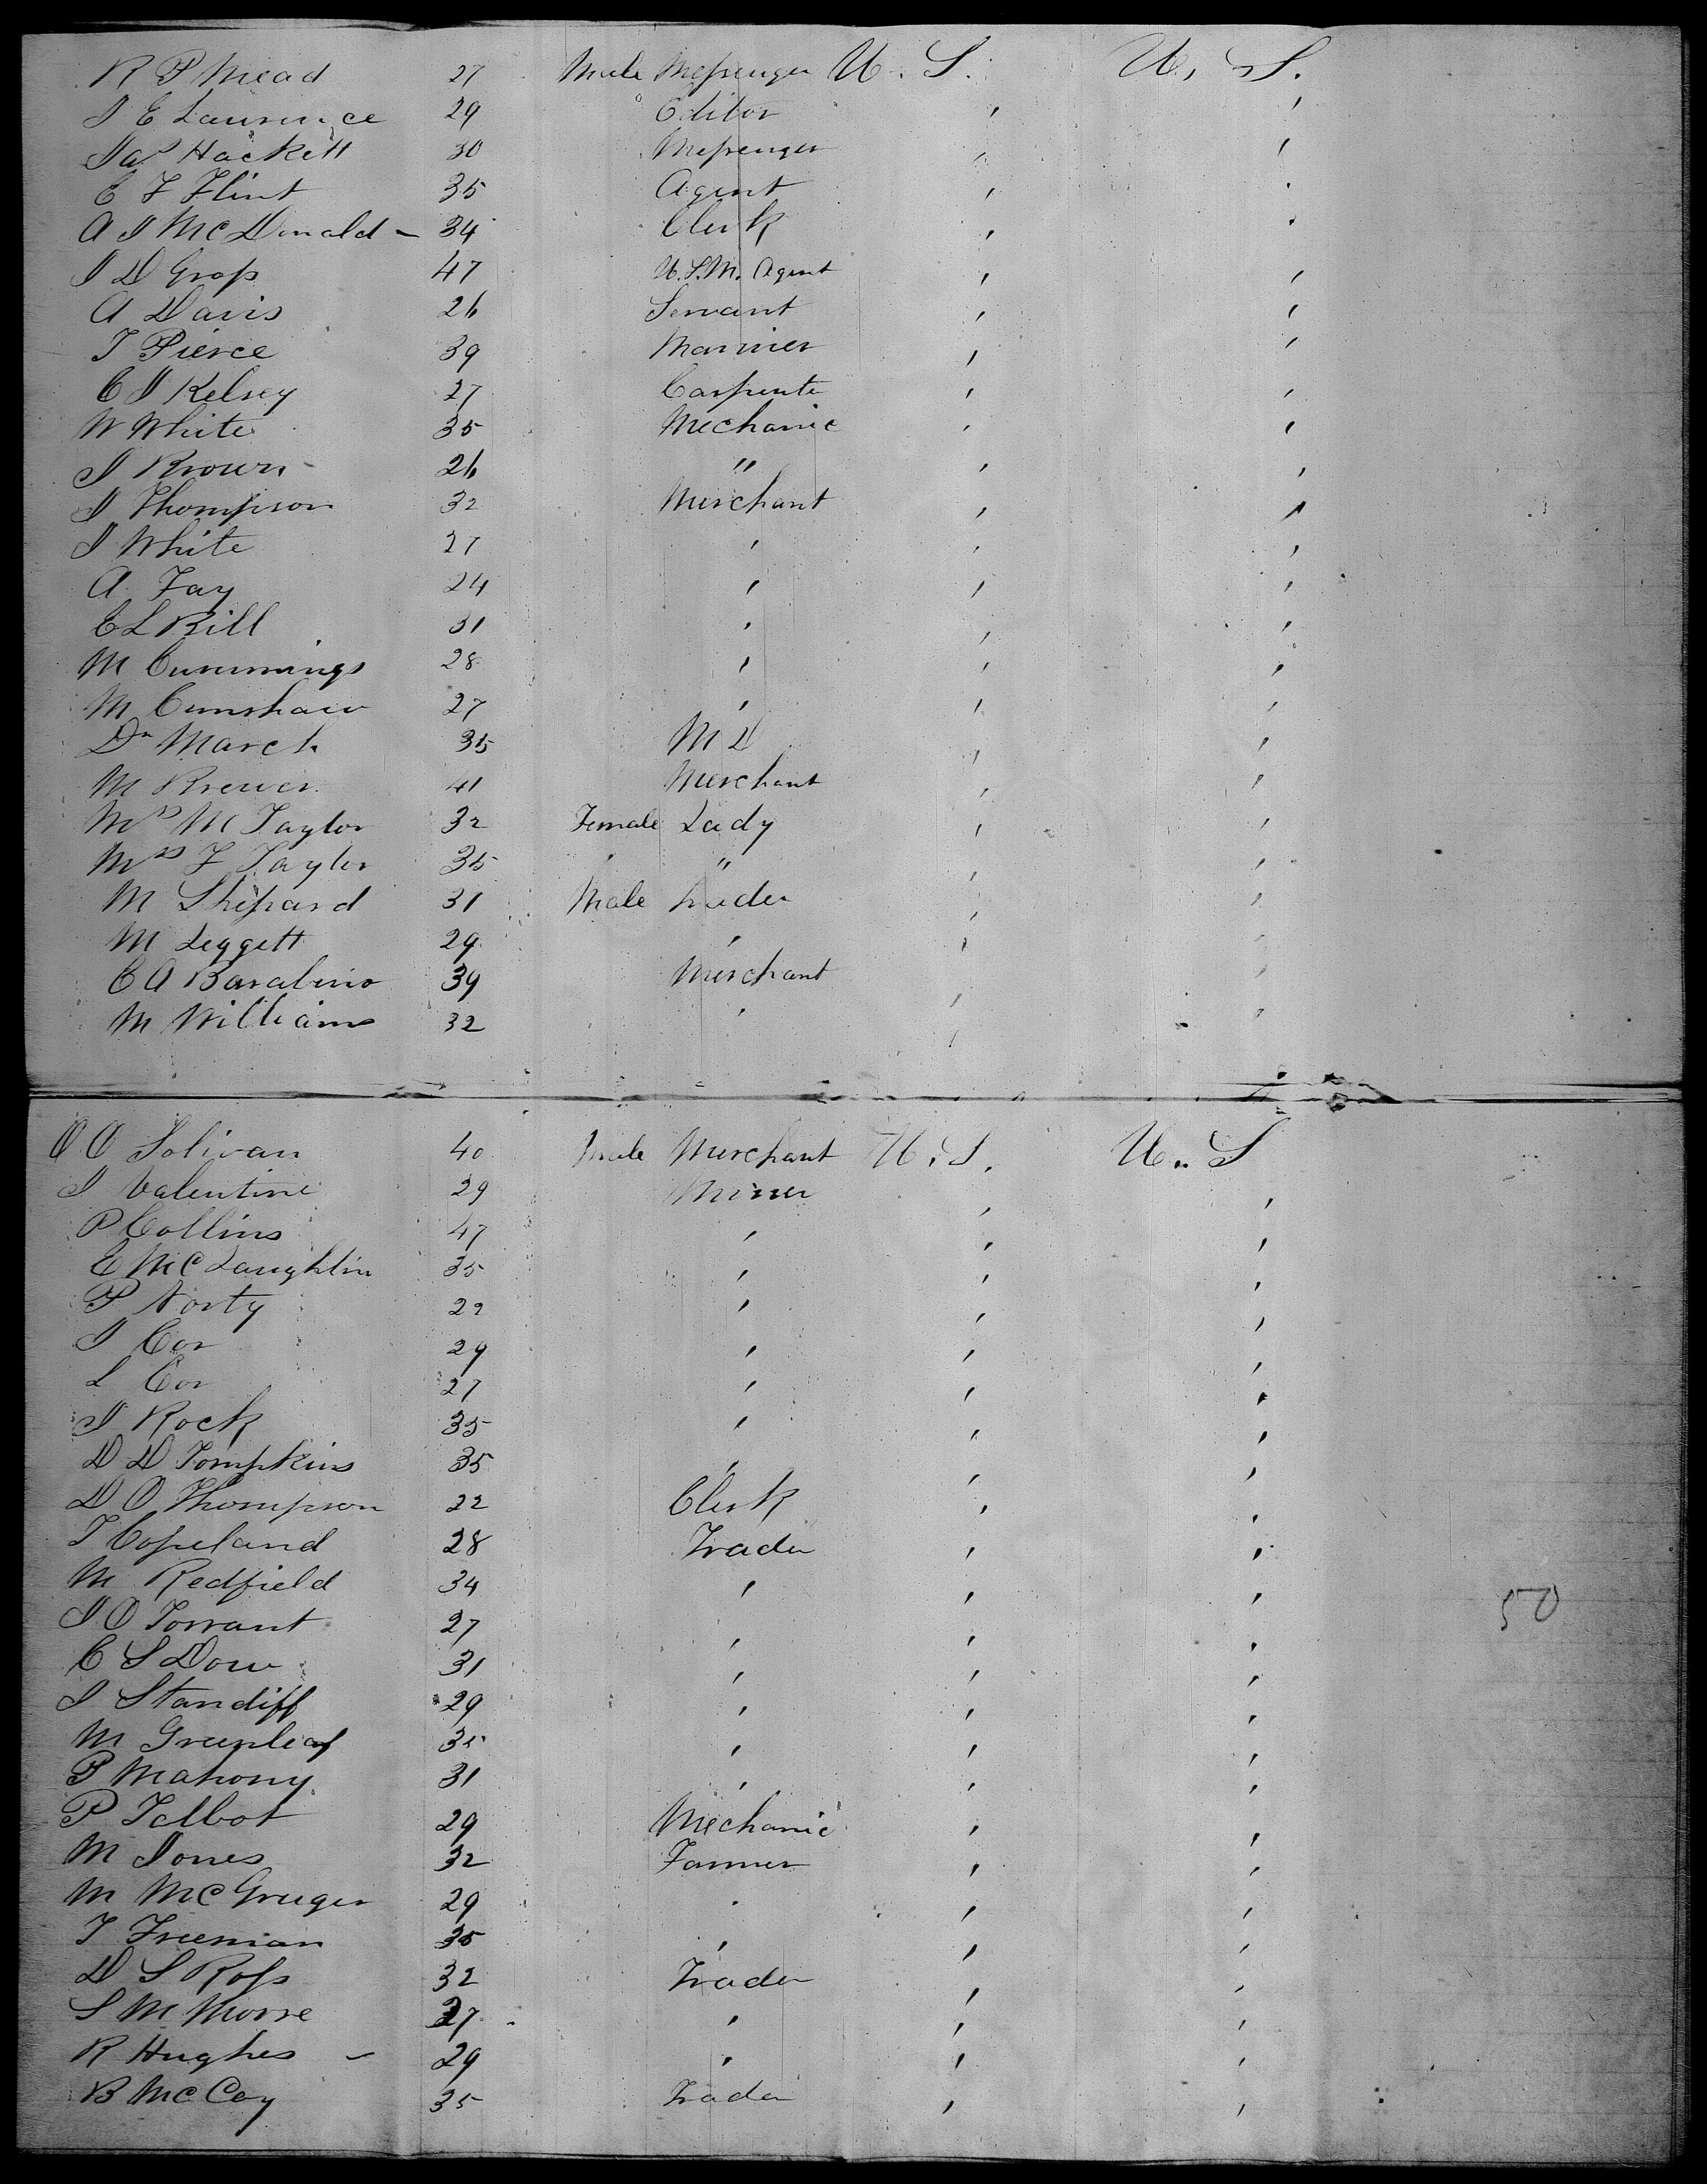 R P Mead 27 Male Messenger U. S. U. S.
J E Laurence 29 Editor ' '
Jas Hackett 30 Messenger ' '
E F Flint 35 Agent ' '
A J McDonald - 34 Clerk ' '
J D Gross 47 U.S.M. Agent ' '
A Davis 26 Servant ' '
T Pierce 39 Mariner ' '
C J Kelsey 27 Carpente ' '
W White 35 Mechanic ' '
J Brown 26 " ' '
J Thompson 32 Merchant ' '
J White 27 ' ' '
A Fay 24 ' ' '
C L Bill 31 ' ' '
M Cummings 28 ' ' '
M Cumshaw 27 ' ' '
Dr March 35 M D ' '
M Brewer 41 Merchant ' '
Mrs M Taylor 32 Female Lady ' '
Mrs F Taylor 35 ' " ' '
M Shepard 31 Male Trader ' '
M Leggett 29 ' ' '
C A Barabino 39 Merchant ' '
M Williams 32 ' ' '
O O Solivan 40 Male Merchant U. S. U. S
J Valentine 29 Miner ' '
P Collins 47 ' ' '
E McLaughlin 35 ' ' '
P Norty 22 ' ' '
J Cor 29 ' ' '
L Cor 27 ' ' '
J Rock 35 ' ' '
D D Tompkins 35 ' ' '
D O Thompson 22 Clerk ' '
T Copeland 28 Trader ' '
M Redfield 34 ' ' '
J O Torrant 27 ' ' '
C S Dow 31 ' ' '
J Standiff 29 ' ' '
M Greenleaf 35 ' ' '
P Mahony 31 ' ' '
P Talbot 29 Mechanic ' '
M Jones 32 Farmer ' '
M McGruger 29 ' ' '
T Freeman 35 ' ' '
D S Ross 32 Trader ' '
S M Morse 27 ' ' '
R Hughes - 29 ' ' '
B McCoy 35 Trader ' '